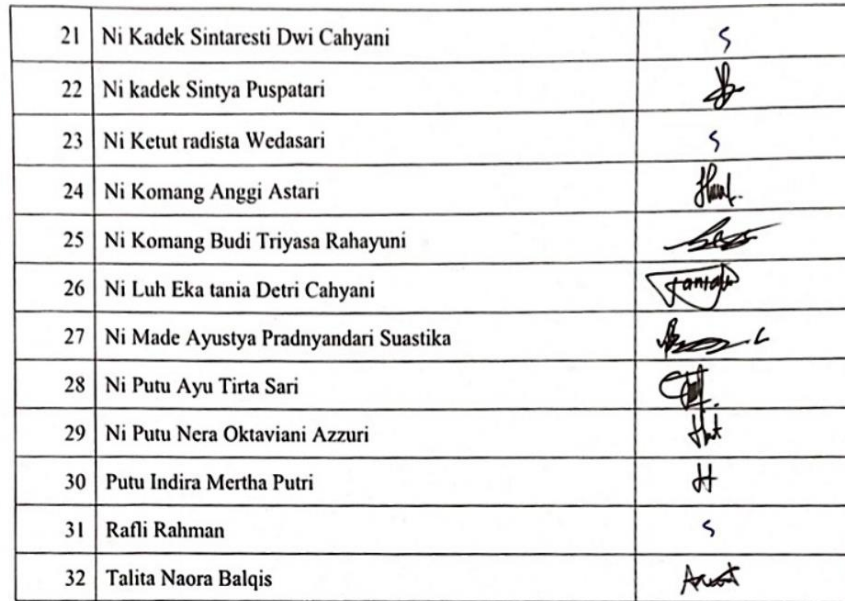 21 Ni Kadek Sintaresti Dwi Cahyani S
22 Ni kadek Sintya Puspatari
23 Ni Ketut radista Wedasari S
24 Ni Komang Anggi Astari
25 Ni Komang Budi Triyasa Rahayuni
26 Ni Luh Eka tania Detri Cahyani
27 Ni Made Ayustya Pradnyandari Suastika
28 Ni Putu Ayu Tirta Sari
29 Ni Putu Nera Oktaviani Azzuri
30 Putu Indira Mertha Putri
31 Rafli Rahman S
32 Talita Naora Balqis